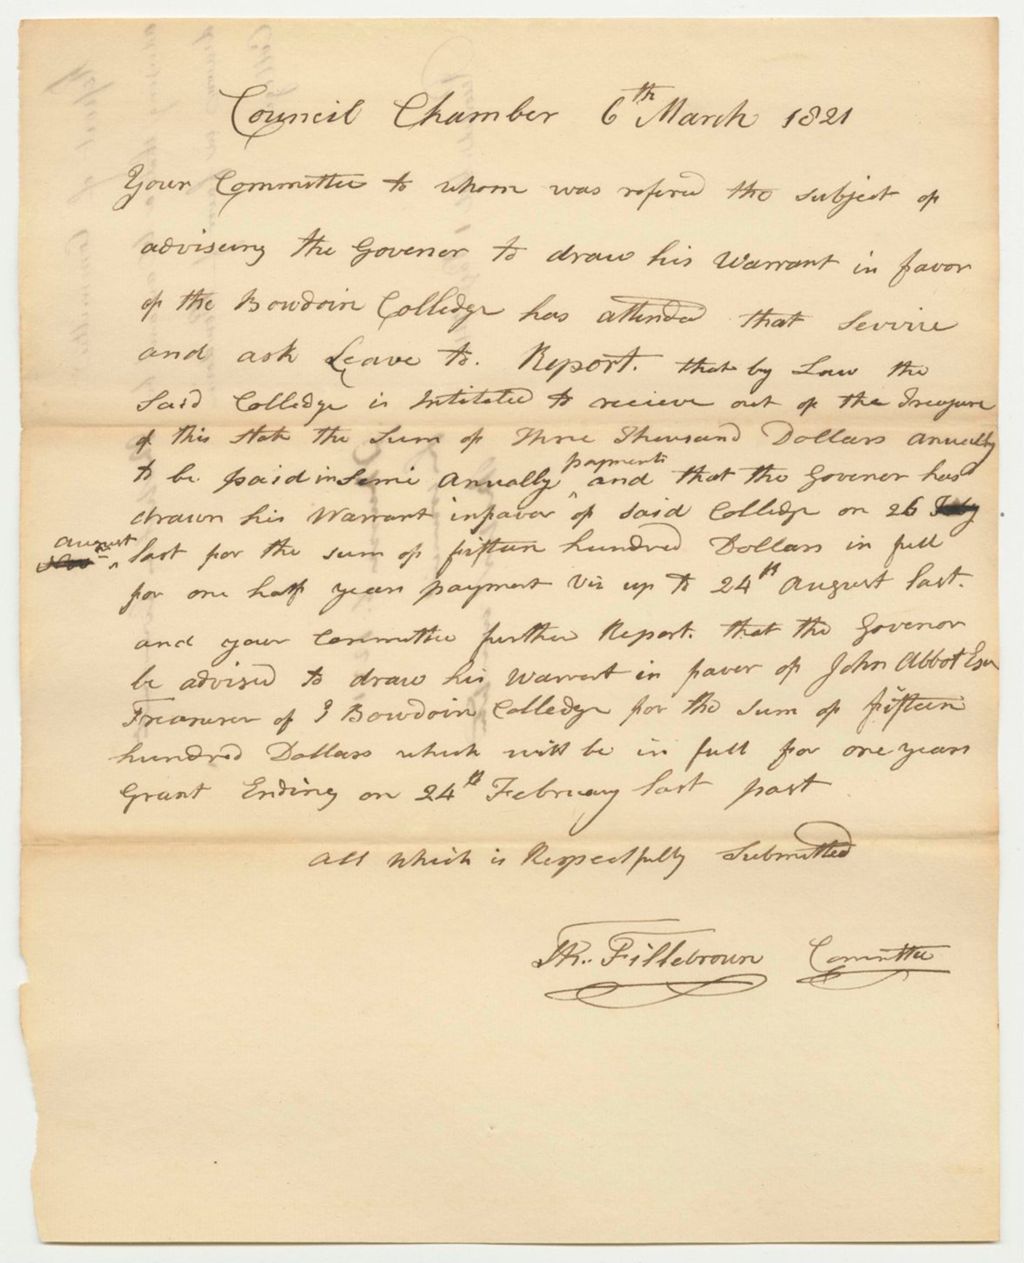 Council Chamber 6th March 1821
Your Committee to whom was refered the subject of
adviseing the Govenor to draw his Warrant in favor
of the Bowdoin Colledge has attended that Servire
and ask Leave to. Report. that by Law the
Said Colledge is Intiteled to recieve out of the Treasure
of this State the Sum of Three Thousand Dollars anually
to be paid in Semi Anually payments and that the Govenor has
drawn his Warrant in favor of said Colledge on 26
August last for the sum of fifteen hundred Dollars in full
for one half years payment viz up to 24th August last.
and your Committee further Report. that the Govenor
be advised to draw his Warrent in favor of John Abbot Esqr
Treasurer of Bowdoin Colledge for the sum of fifteen
hundred Dollars which will be in full for one years
Grant Ending on 24th February last past
All which is Respectfully Submitted
Th.. Fillebrown Committee